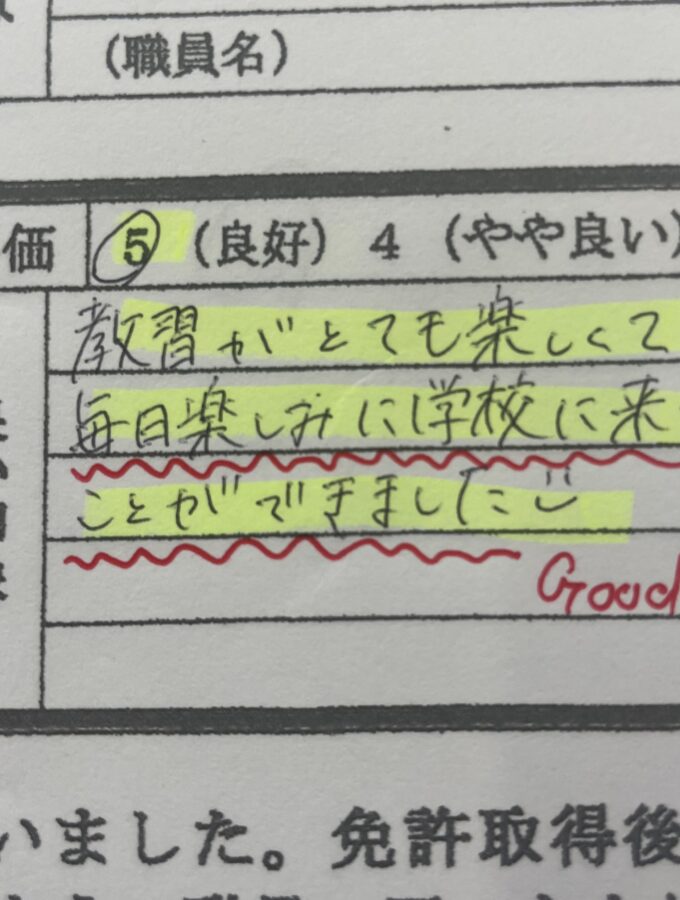 (職員名)
価 5 (良好) 4 (やや良い)
教習がとても楽しくて
毎日楽しみに学校に来
ことができました
Good
いました。免許取得後